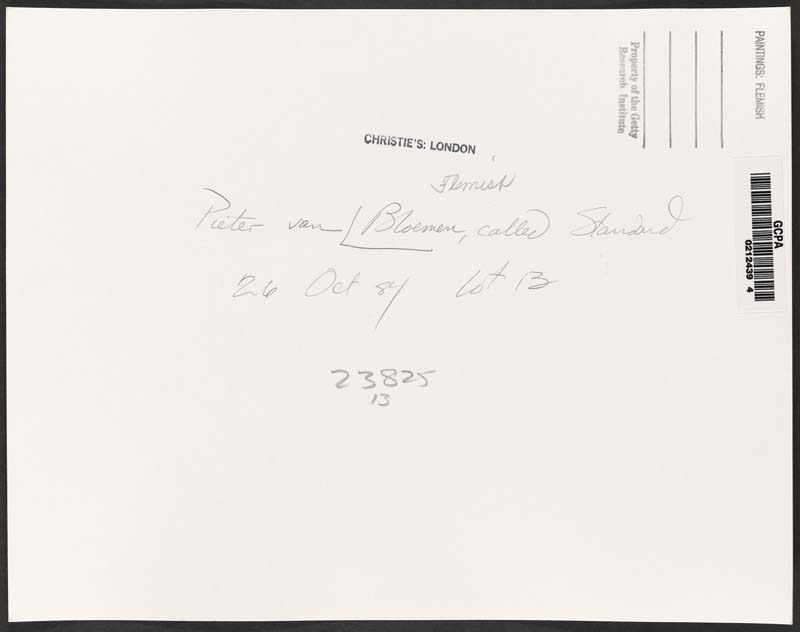 PAINTINGS: FLEMISH
Property of the Getty
Research Institute
CHRISTIE'S: LONDON
Flemish
Pieter van Bloemen, called Standard
26 Oct 84 Lot 13
23825
13
GCPA
0212439 4